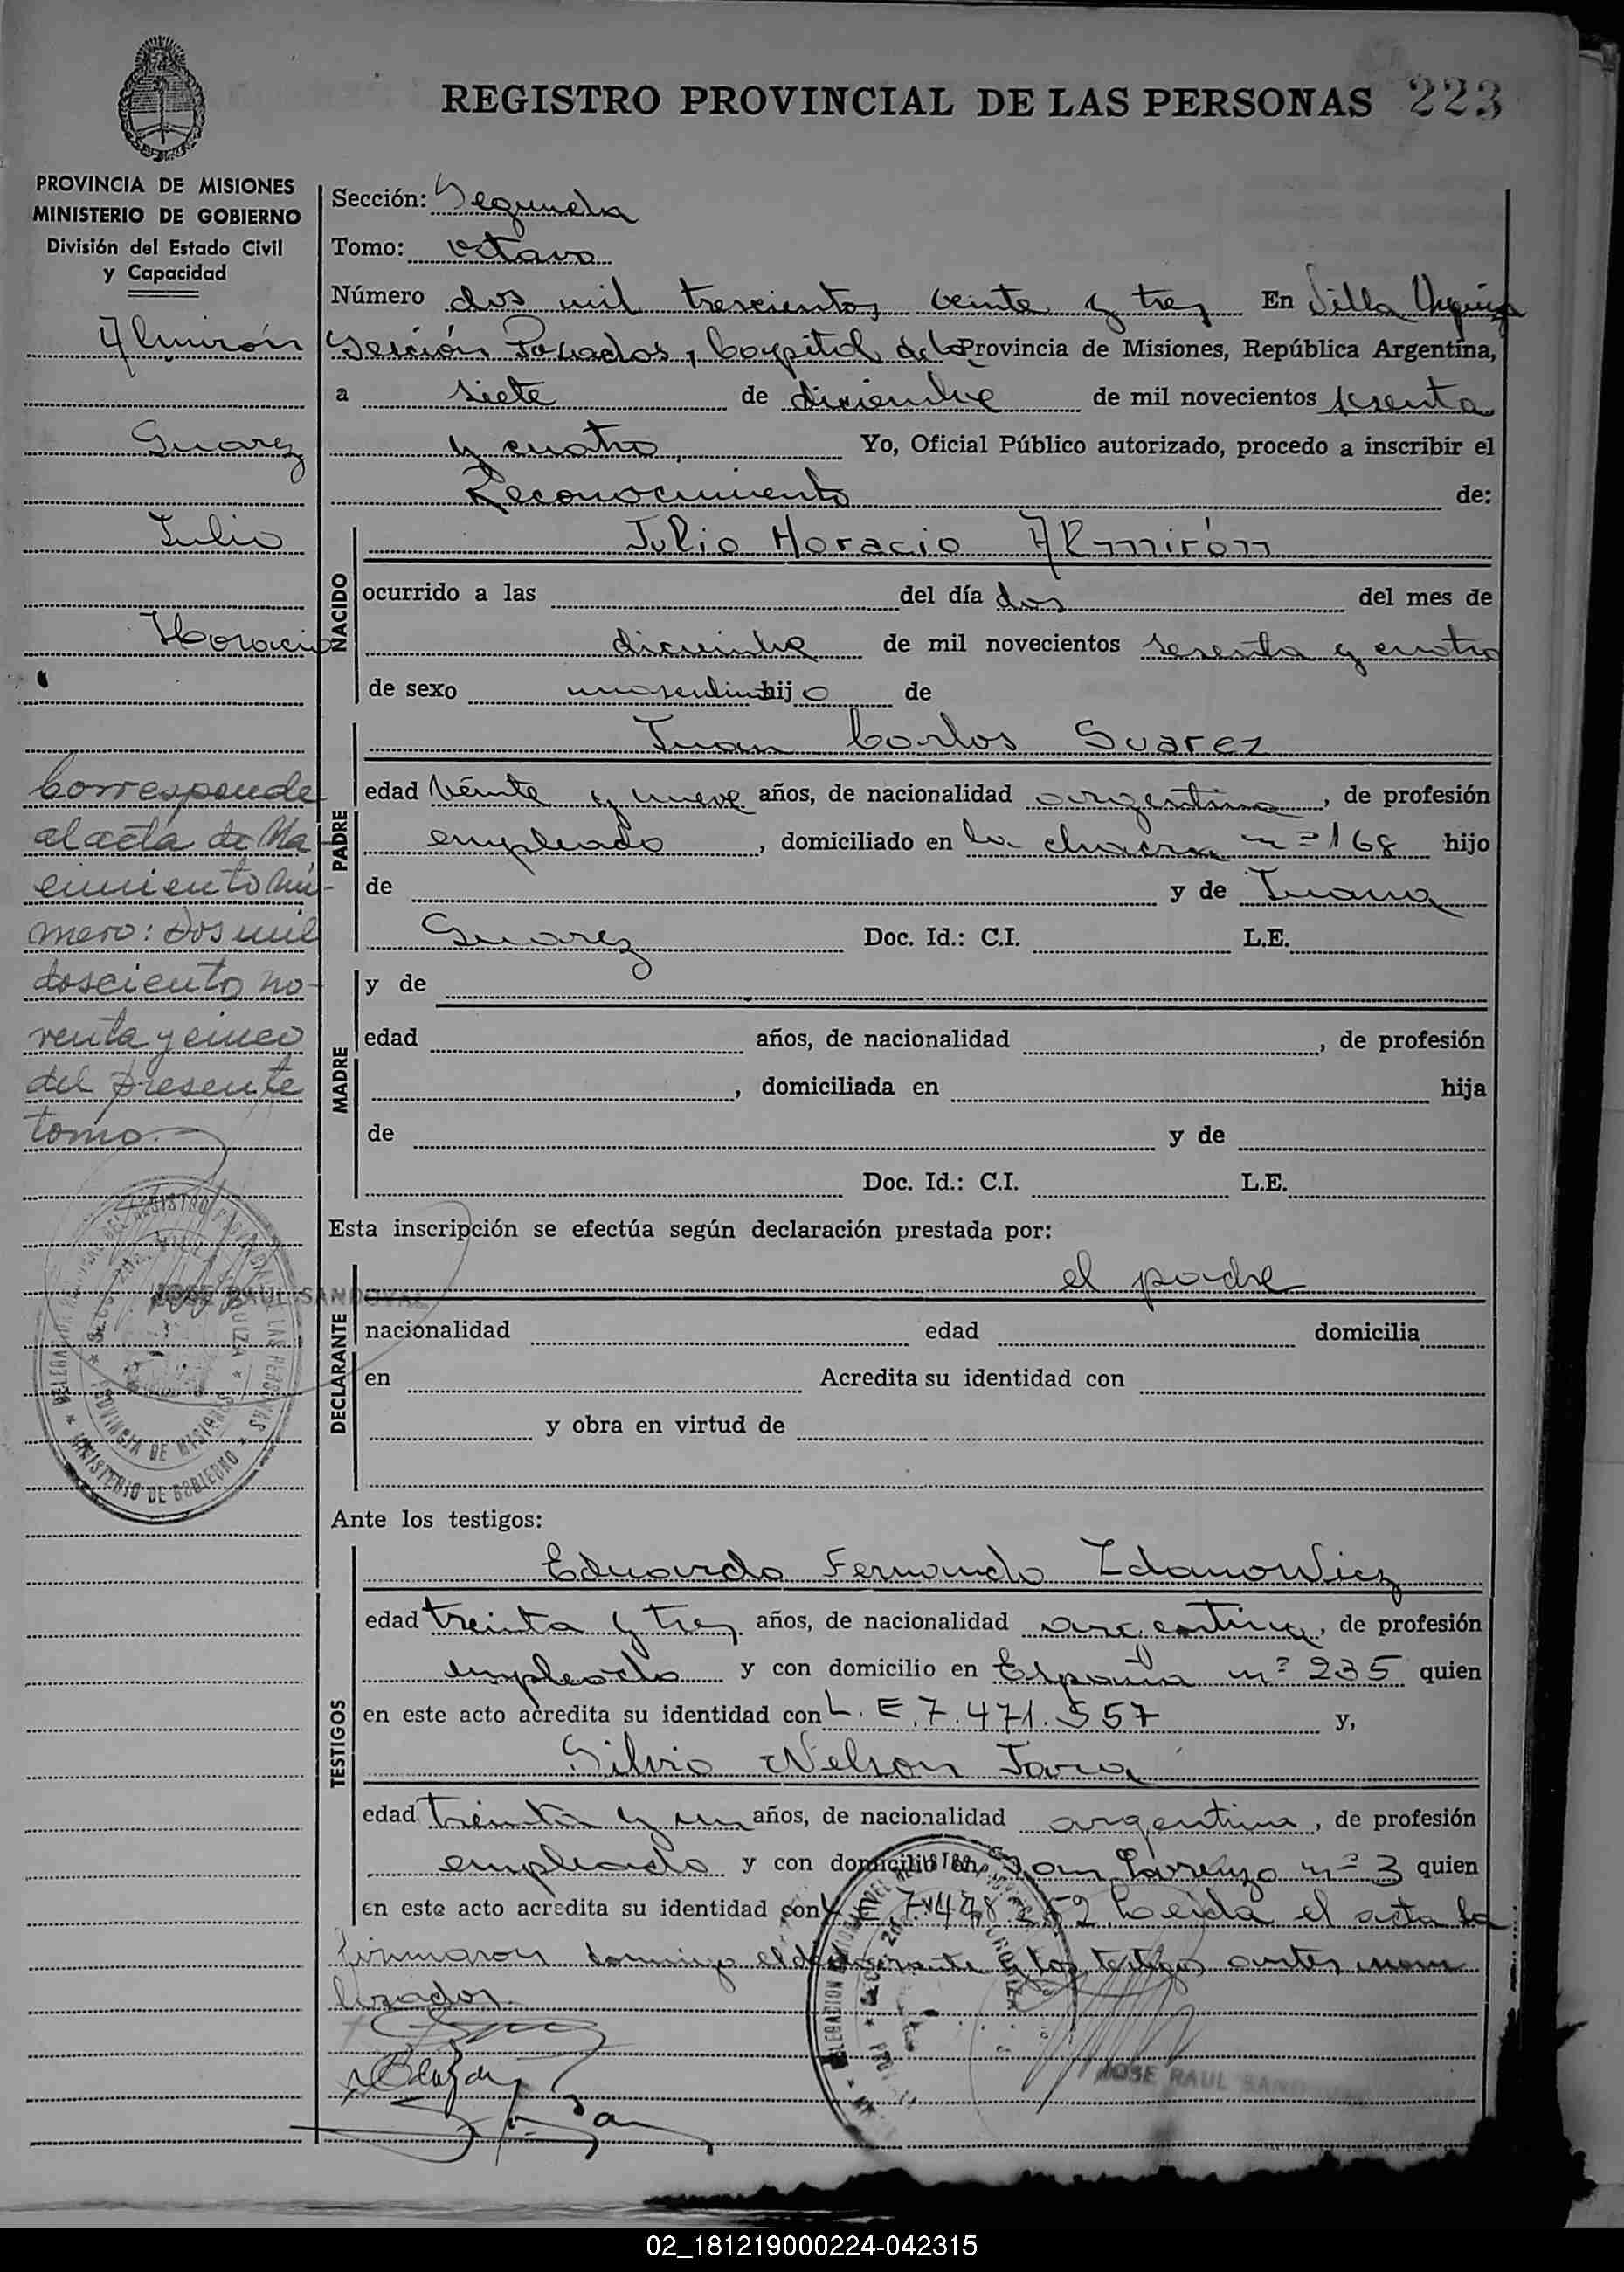 REGISTRO PROVINCIAL DE LAS PERSONAS 223
PROVINCIA DE MISIONES
MINISTERIO DE GOBIERNO
División del Estado Civil
y Capacidad
Almirón
Suarez
Julio
Horacio
Corresponde
al acta de Na
cimiento nú-
mero: dos mil
doscientos no-
venta y cinco
del presente
tomo.
JOSE RAUL SANDOVAL
Sección: Segunda
Tomo: octavo
Número dos mil trescientos veinte y tres En Villa Urquiza
Sección Posadas, Capital de la Provincia de Misiones, República Argentina,
a siete de diciembre de mil novecientos sesenta
y cuatro, Yo, Oficial Público autorizado, procedo a inscribir el
Reconocimiento de:
NACIDO
Julio Horacio Almirón
ocurrido a las del día dos del mes de
diciembre de mil novecientos sesenta y cuatro
de sexo masculino hijo de
PADRE
Juan Carlos Suarez
edad veinte y nueve años, de nacionalidad argentina, de profesión
empleado, domiciliado en la chacra nº 168 hijo
de y de Juana
Suarez Doc. Id.: C.I. L.E.
MADRE
y de
edad años, de nacionalidad , de profesión
, domiciliada en hija
de y de
Doc. Id.: C.I. L.E.
Esta inscripción se efectúa según declaración prestada por:
DECLARANTE
el padre
nacionalidad edad domicilia
en Acredita su identidad con
y obra en virtud de
Ante los testigos:
TESTIGOS
Eduardo Fernando Zdanowicz
edad treinta y tres años, de nacionalidad argentina, de profesión
empleado y con domicilio en España nº 235 quien
en este acto acredita su identidad con L.E. 7.471.557 y,
Silvio Nelson Jara
edad treinta y un años, de nacionalidad argentina, de profesión
empleado y con domicilio en San Lorenzo nº 3 quien
en este acto acredita su identidad con Leida el acta la
firmaron conmigo el declarante y los testigos antes nom
brados.
JOSE RAUL
MINISTERIO DE GOBIERNO
PROVINCIA DE MISIONES
02_181219000224-042315